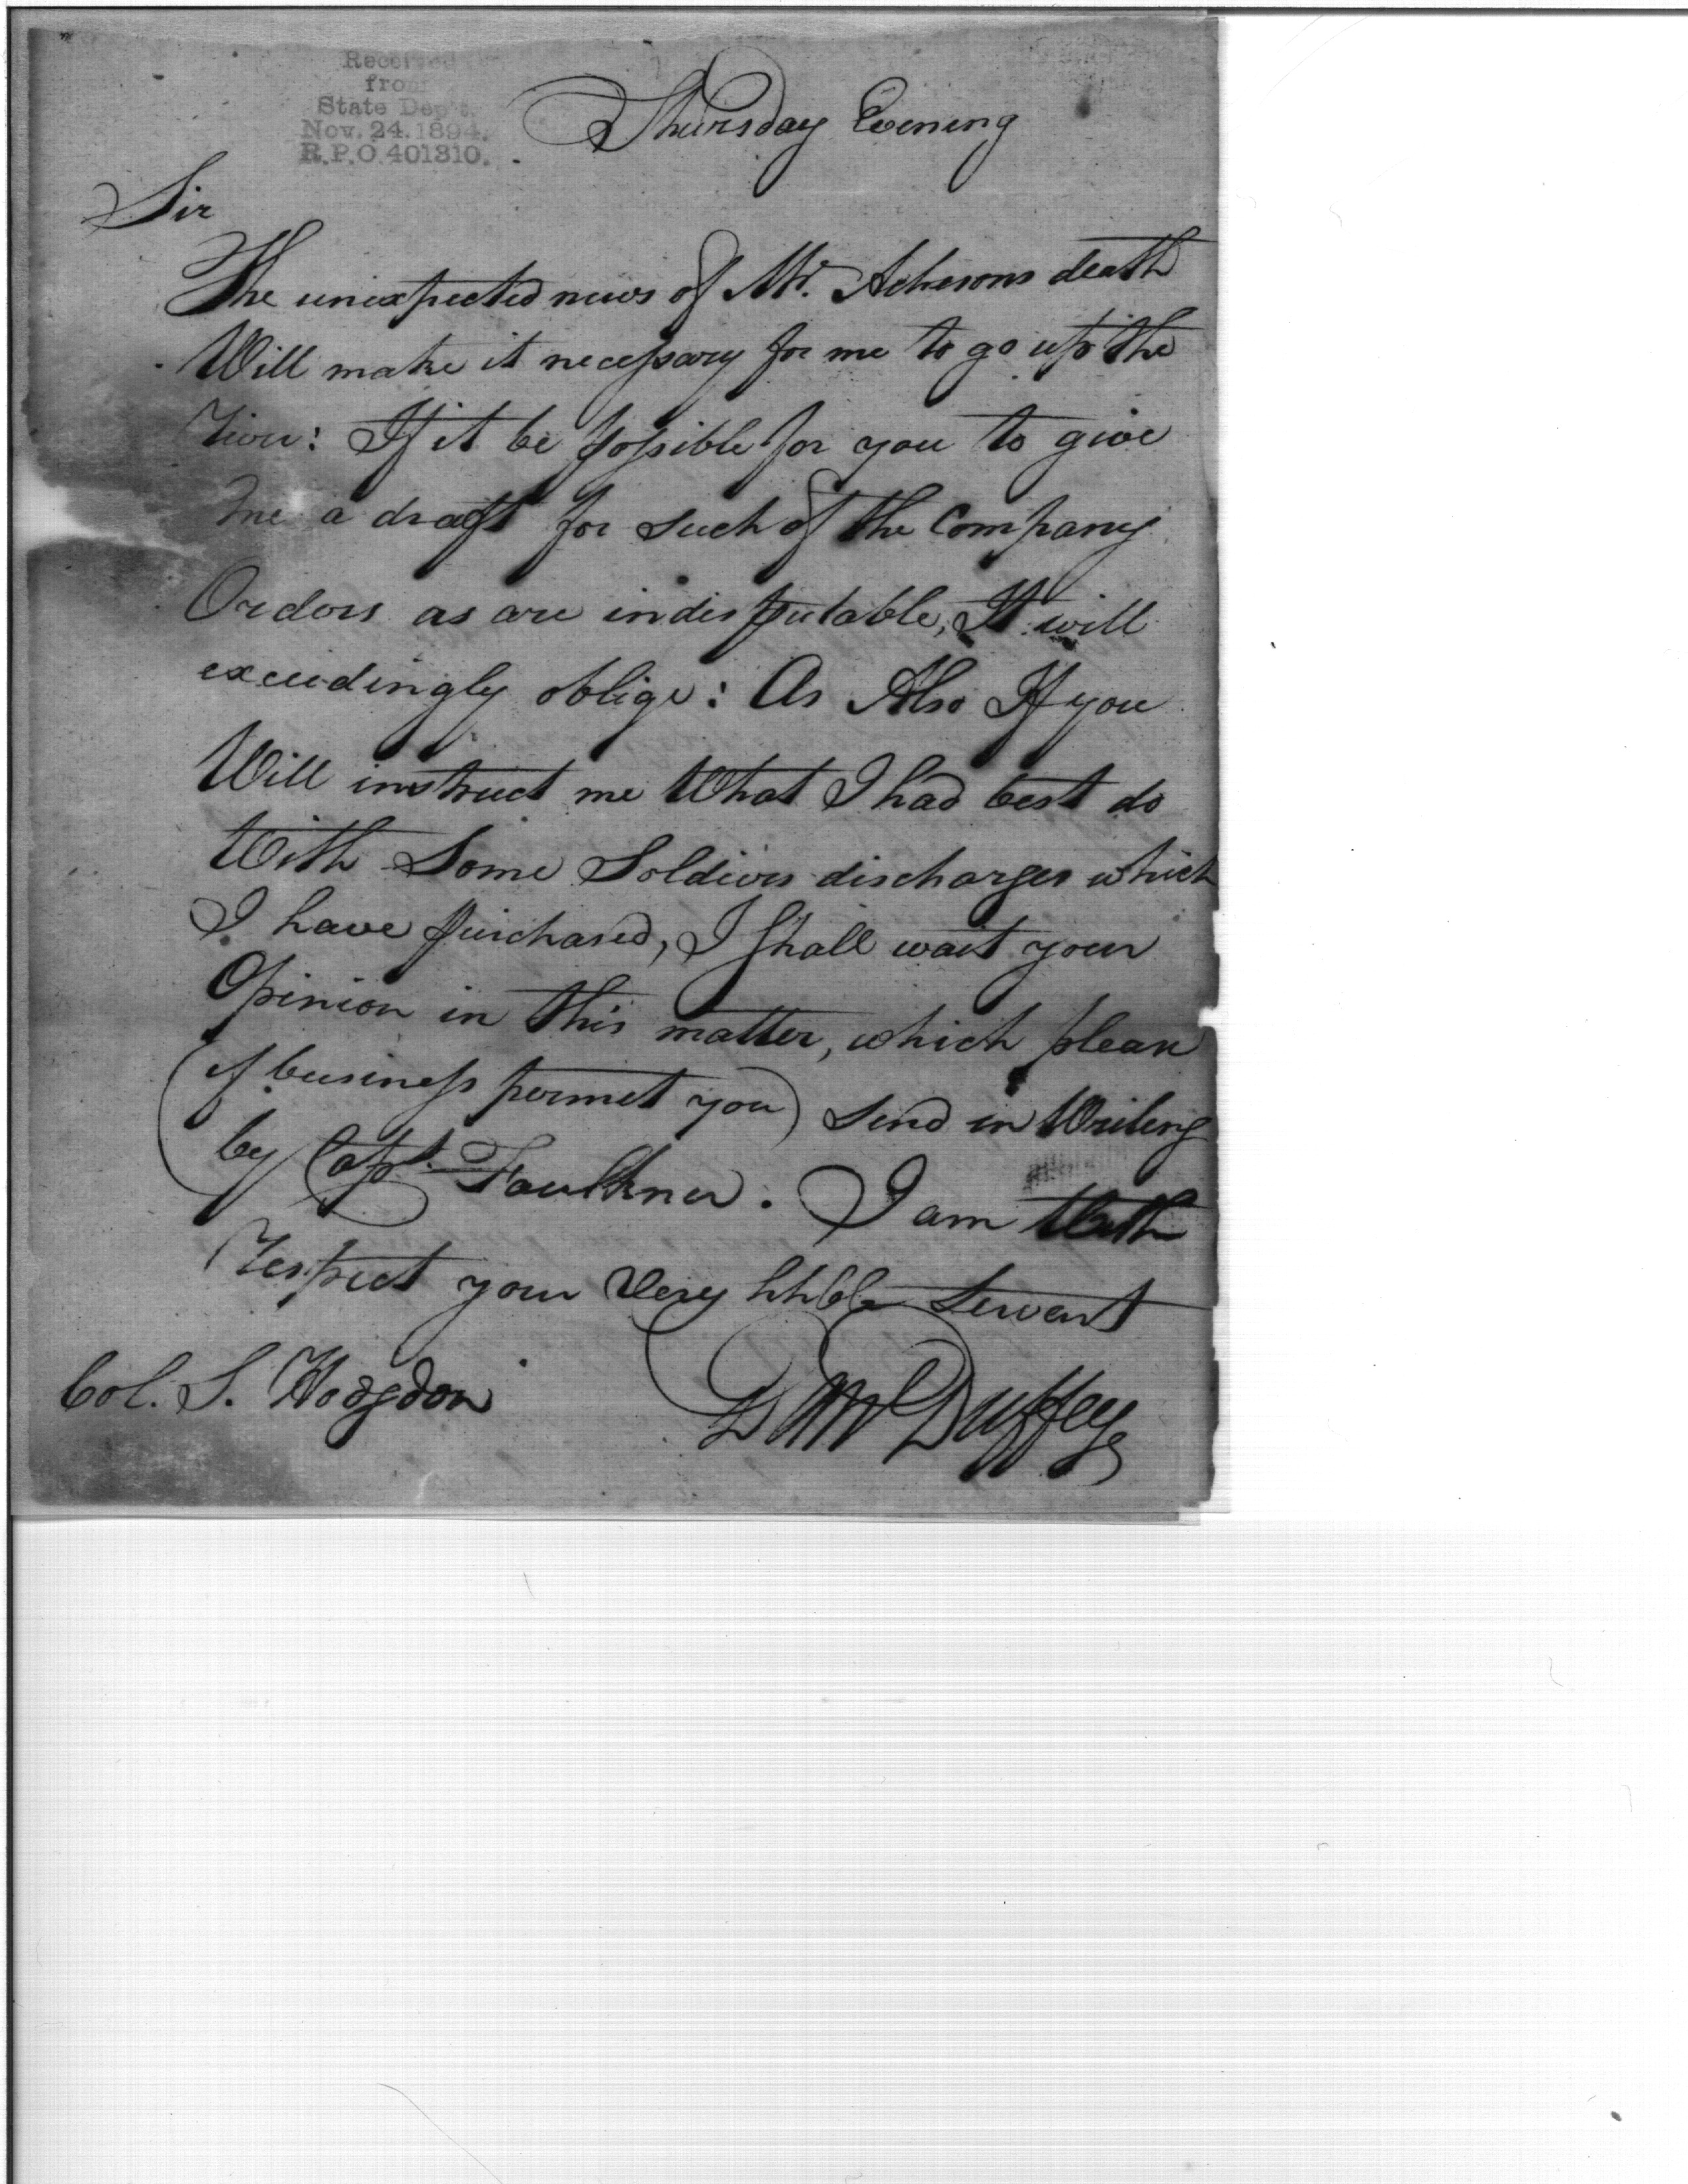 Received
from
State Dep't.
Nov. 24. 1894.
R.P.O. 401310.
Thursday Evening
Sir
The unexpected news of Mr. Achesons death
Will make it necessary for me to go up the
River: If it be possible for you to give
me a draft for such of the Company
Orders as are indisputable, It will
exceedingly oblige: As Also If you
Will instruct me What I had best do
With Some Soldiers discharges which
I have purchased, I shall wait your
Opinion in this matter, which please
(if business permit you) send in Writing
by Capt. Faulkner. I am With
respect your Very hhble Servent
D McDuffey
Col. S. Hodgdon